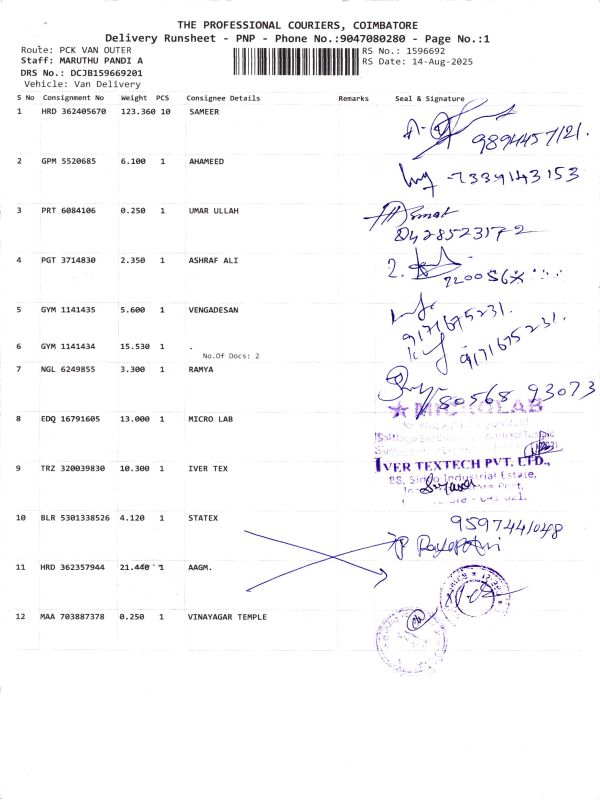 THE PROFESSIONAL COURIERS, COIMBATORE
Delivery Runsheet - PNP - Phone No.:9047080280 - Page No.:1
Route: PCK VAN OUTER
RS No.: 1596692
Staff: MARUTHU PANDI A
RS Date: 14-Aug-2025
DRS No.: DCJB159669201
Vehicle: Van Delivery
S No Consignment No Weight PCS Consignee Details Remarks Seal & Signature
1 HRD 362405670 123.360 10 SAMEER
9894457121.
2 GPM 5520685 6.100 1 AHAMEED
7339143153
3 PRT 6084106 0.250 1 UMAR ULLAH
4 PGT 3714830 2.350 1 ASHRAF ALI
5 GYM 1141435 5.600 1 VENGADESAN
9171675231.
6 GYM 1141434 15.530 1 .
9171675231.
No.Of Docs: 2
7 NGL 6249855 3.300 1 RAMYA
80568 93073
8 EDQ 16791605 13.000 1 MICRO LAB
MICROLAB
9 TRZ 320039830 10.300 1 IVER TEX
IVER TEXTECH PVT. LTD.,
Industrial Estate,
10 BLR 5301338526 4.120 1 STATEX
9597441048
11 HRD 362357944 21.440 1 AAGM.
12 MAA 703887378 0.250 1 VINAYAGAR TEMPLE